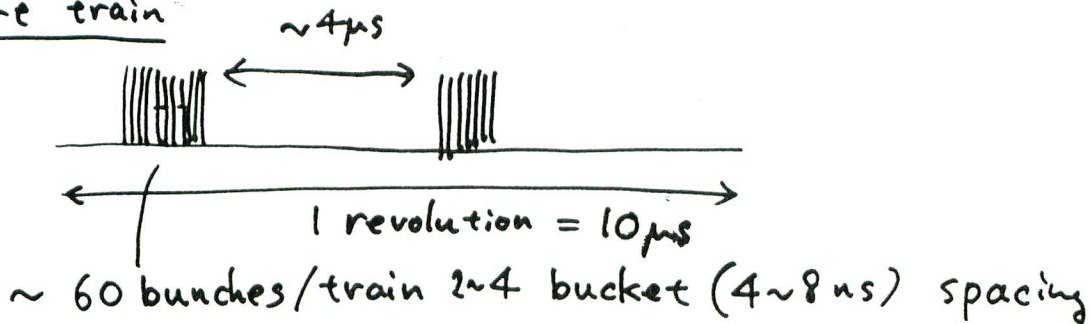 train
~4μs
1 revolution = 10μs
~ 60 bunches/train 2~4 bucket (4~8ns) spacing